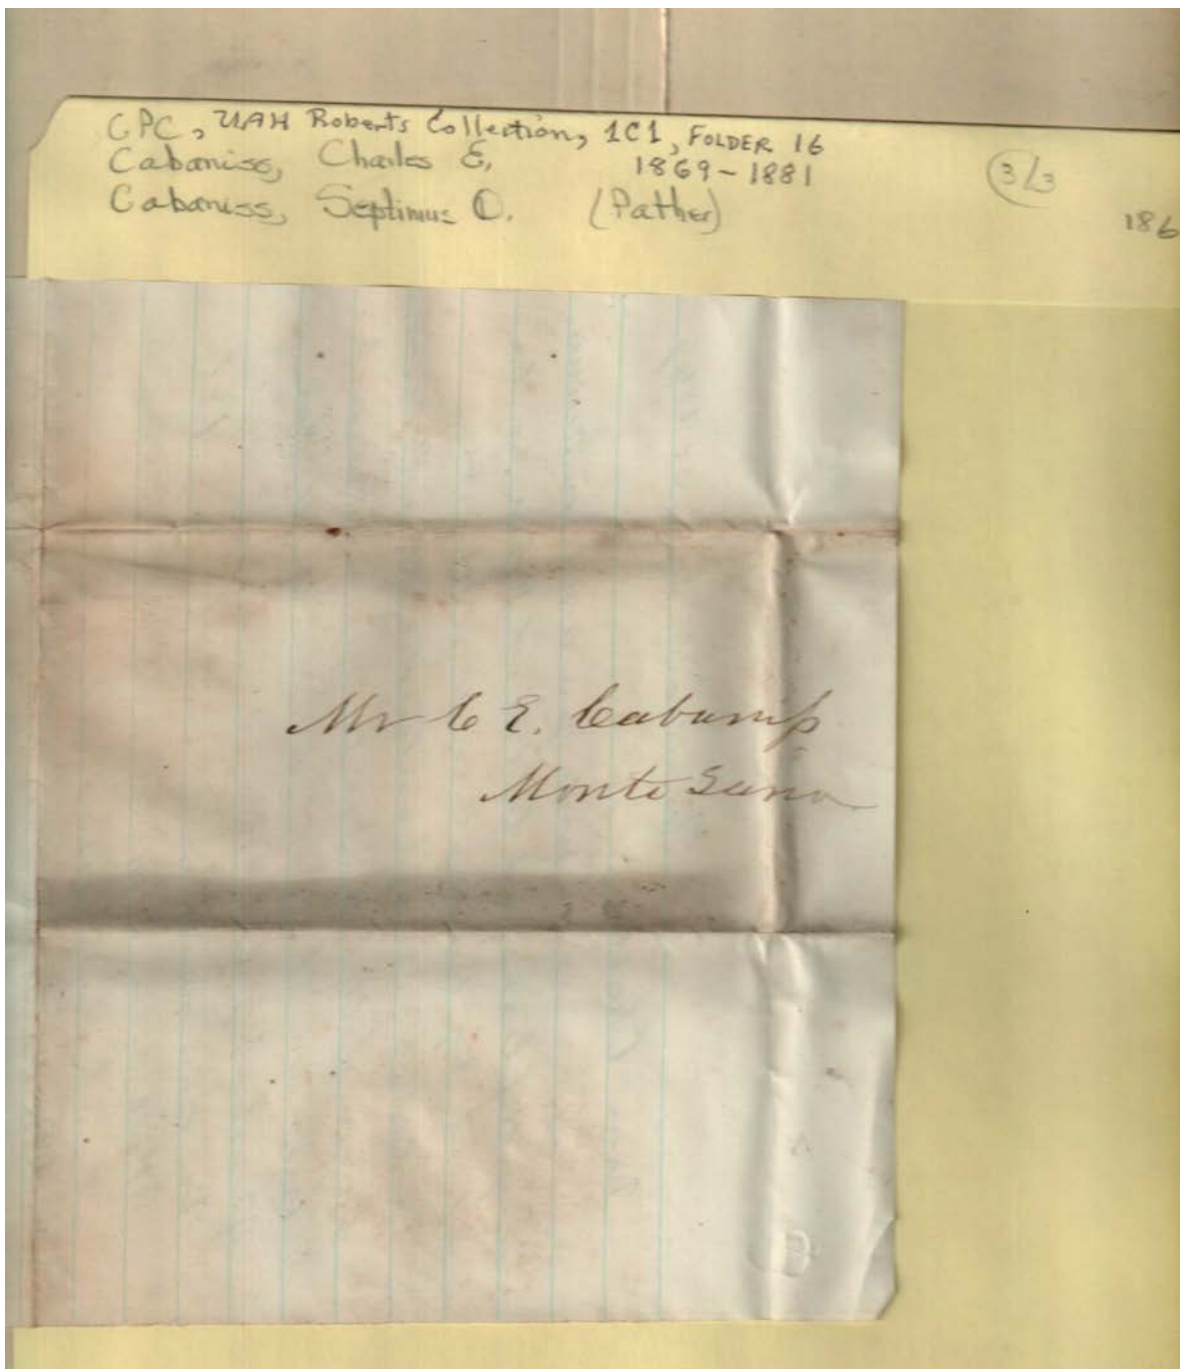 CPC, UAH Roberts Collection, 1C1, FOLDER 16
Cabaniss, Charles E, 1869-1881 3/3
Cabaniss, Septimus D. (Father) 186
Mr C E. Cabaniss
Monte Sano